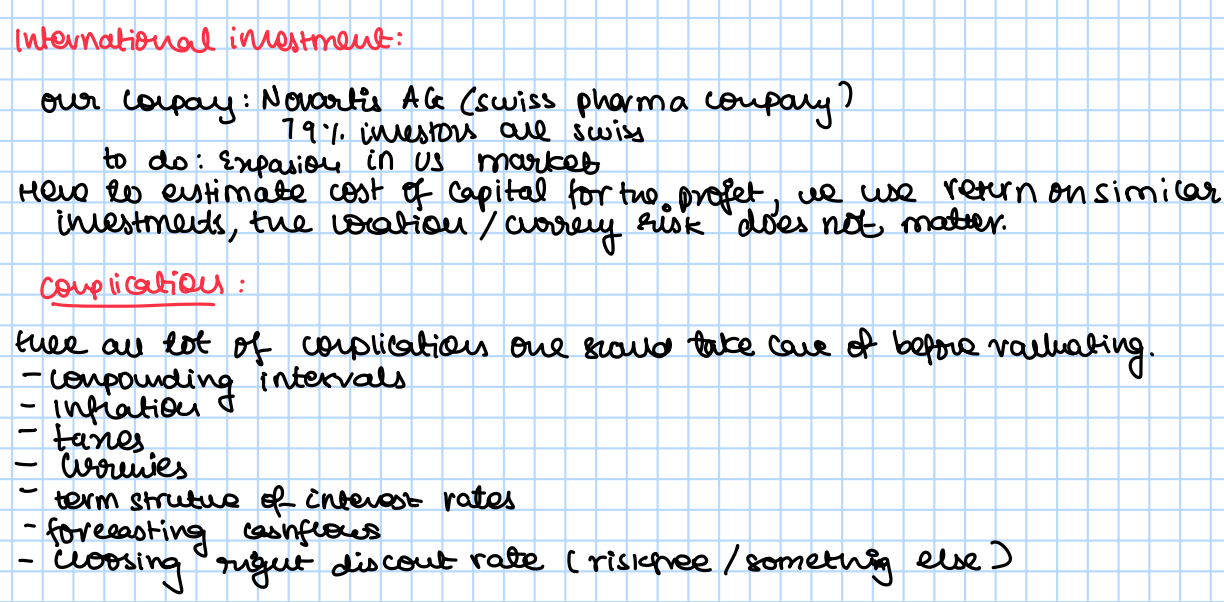 International investment:
our company: Novartis AG (swiss pharma company)
79% investors are swiss
to do: Expasion in US market
Here to estimate cost of capital for the project, we use return on similar
investments, the location / currency risk does not matter.
complications:
there are lot of complications one should take care of before valuating.
- compounding intervals
- inflation
- taxes
- currencies
- term struture of interest rates
- forecasting cashflows
- choosing right discount rate (riskfree / something else)